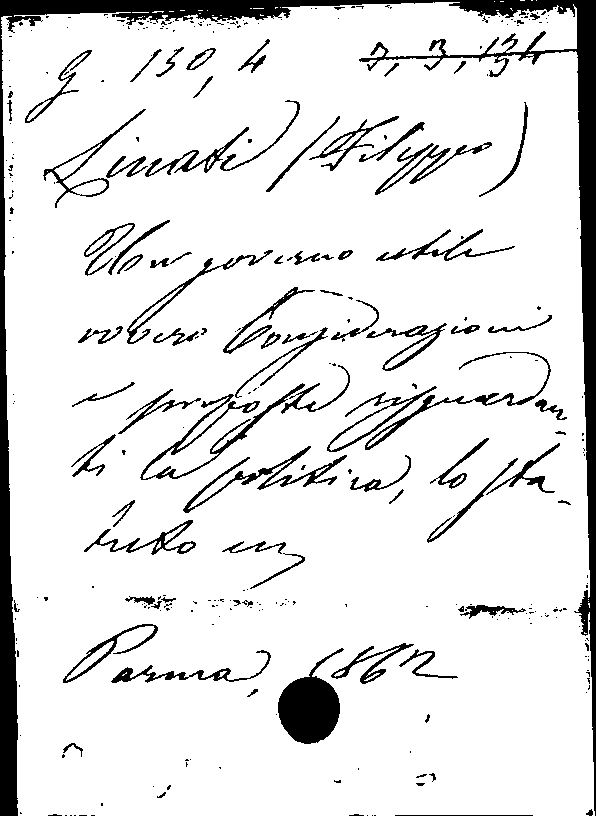 G. 130, 4 3, 3, 134
Linati (Filippo)
Un governo utile
ovvero Considerazioni
e proposte risguardan-
ti la politica, lo sta-
tuto ecc
Parma, 1862